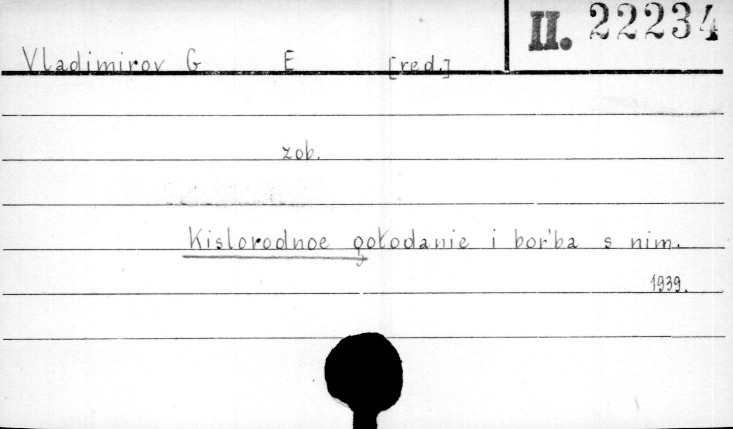 II. 22234
Vladimirov G E [red.]
zob.
Kislorodnoe gołodanie i bor'ba s nim.
1939.